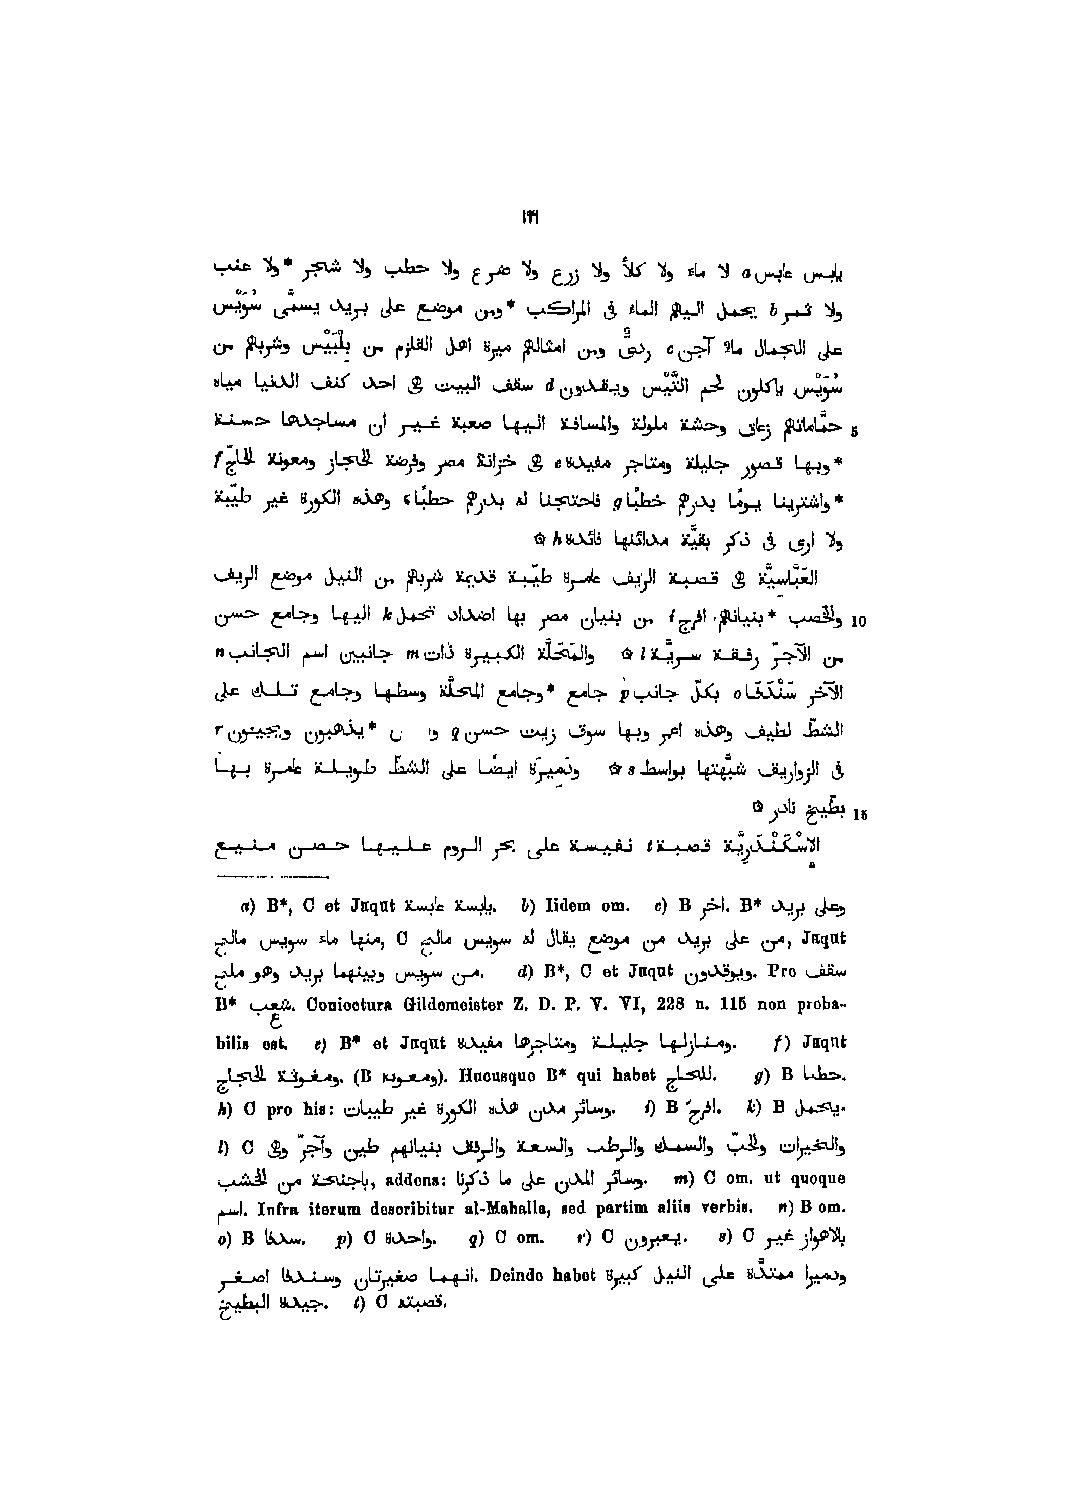 ١٩٦
يابس عابس a لا ماء ولا كلأ ولا زرع ولا ضرع ولا حطب ولا شجر *ولا عنب
ولا ثمر b يحمل اليهم الماء فى المراكب *ومن موضع على بريد يسمّى سُوَيْس
على الجمال ماء آجن c ردىّ ومن امثالهم ميرة اهل القلزم من بِلْبَيْس وشربهم من
سُوَيْس ياكلون لحم التَّيْس ويقدون d سقف البيت هى احد كنف الدنيا مياه
5 حمّاماتهم زعاق وحشة ملولة والمسافة اليها صعبة غير أن مساجدها حسنة
*وبها قصور جليلة ومتاجر مفيدة e هى خزانة مصر وفرضة الحجاز ومعونة الحاجّ f
*واشترينا يومًا بدرهم خطبًا g فاحتجنا له بدرهم حطبًا وهذه الكورة غير طيّبة
ولا ارى فى ذكر بقيّة مدائنها فائدة h ۞
العَبَّاسيَّة هى قصبة الريف عامرة طيّبة قديمة شربهم من النيل موضع الريف
10 والخصب *بنيانهم افرج i من بنيان مصر بها اضداد تحمل k اليها وجامع حسن
من الآجرّ رفقة سريّة l ۞ والمَحَلَّة الكبيرة ذات m جانبين اسم الجانب n
الآخر سَنْدَفَا o بكلّ جانب p جامع *وجامع المحلّة وسطها وجامع تلك على
الشطّ لطيف وهذه اعمر وبها سوق زيت حسن q *يذهبون ويجيئون r
فى الزواريق شبّهتها بواسط s ۞ ودميرَة ايضًا على الشطّ طويلة عامرة بها
15 بطّيخ نادر ۞
الإسْكَنْدَريَّة قصبة t نفيسة على بحر الروم عليها حصن منيع
a) B*, C et Jaqut يابسة عابسة. b) Iidem om. c) B اخر. B* وعلى بريد
من على بريد من موضع يقال له سويس مالح, C منها ماء سويس مالح, Jaqut
من سويس وبينهما بريد وهو ملح. d) B*, C et Jaqut ويوقدون. Pro سقف
B* شعب. Coniectura Gildemeister Z. D. P. V. VI, 228 n. 115 non proba-
bilis est. e) B* et Jaqut ومنازلها جليلة ومتاجرها مفيدة. f) Jaqut
ومغوثة الحجاج. (B ومعونه). Hucusque B* qui habet للحاج. g) B حطبا.
h) C pro his: وسائر مدن هذه الكورة غير طيبات. i) B افرح. k) B يحمل.
l) C والخيرات والحبّ والسمك والرطب والسعة والرفق بنيانهم طين وآجرّ وهى
باجنحة من الخشب, addens: وسائر المدن على ما ذكرنا. m) C om. ut quoque
اسم. Infra iterum describitur al-Mahalla, sed partim aliis verbis. n) B om.
o) B سدفا. p) C واحدة. q) C om. r) C يعبرون. s) C بالاهواز غير
انهما صغيرتان وسندفا اصغر. Deinde habet ودميرا ممتدّة على النيل كبيرة
جيدة البطيخ. t) C قصبته.